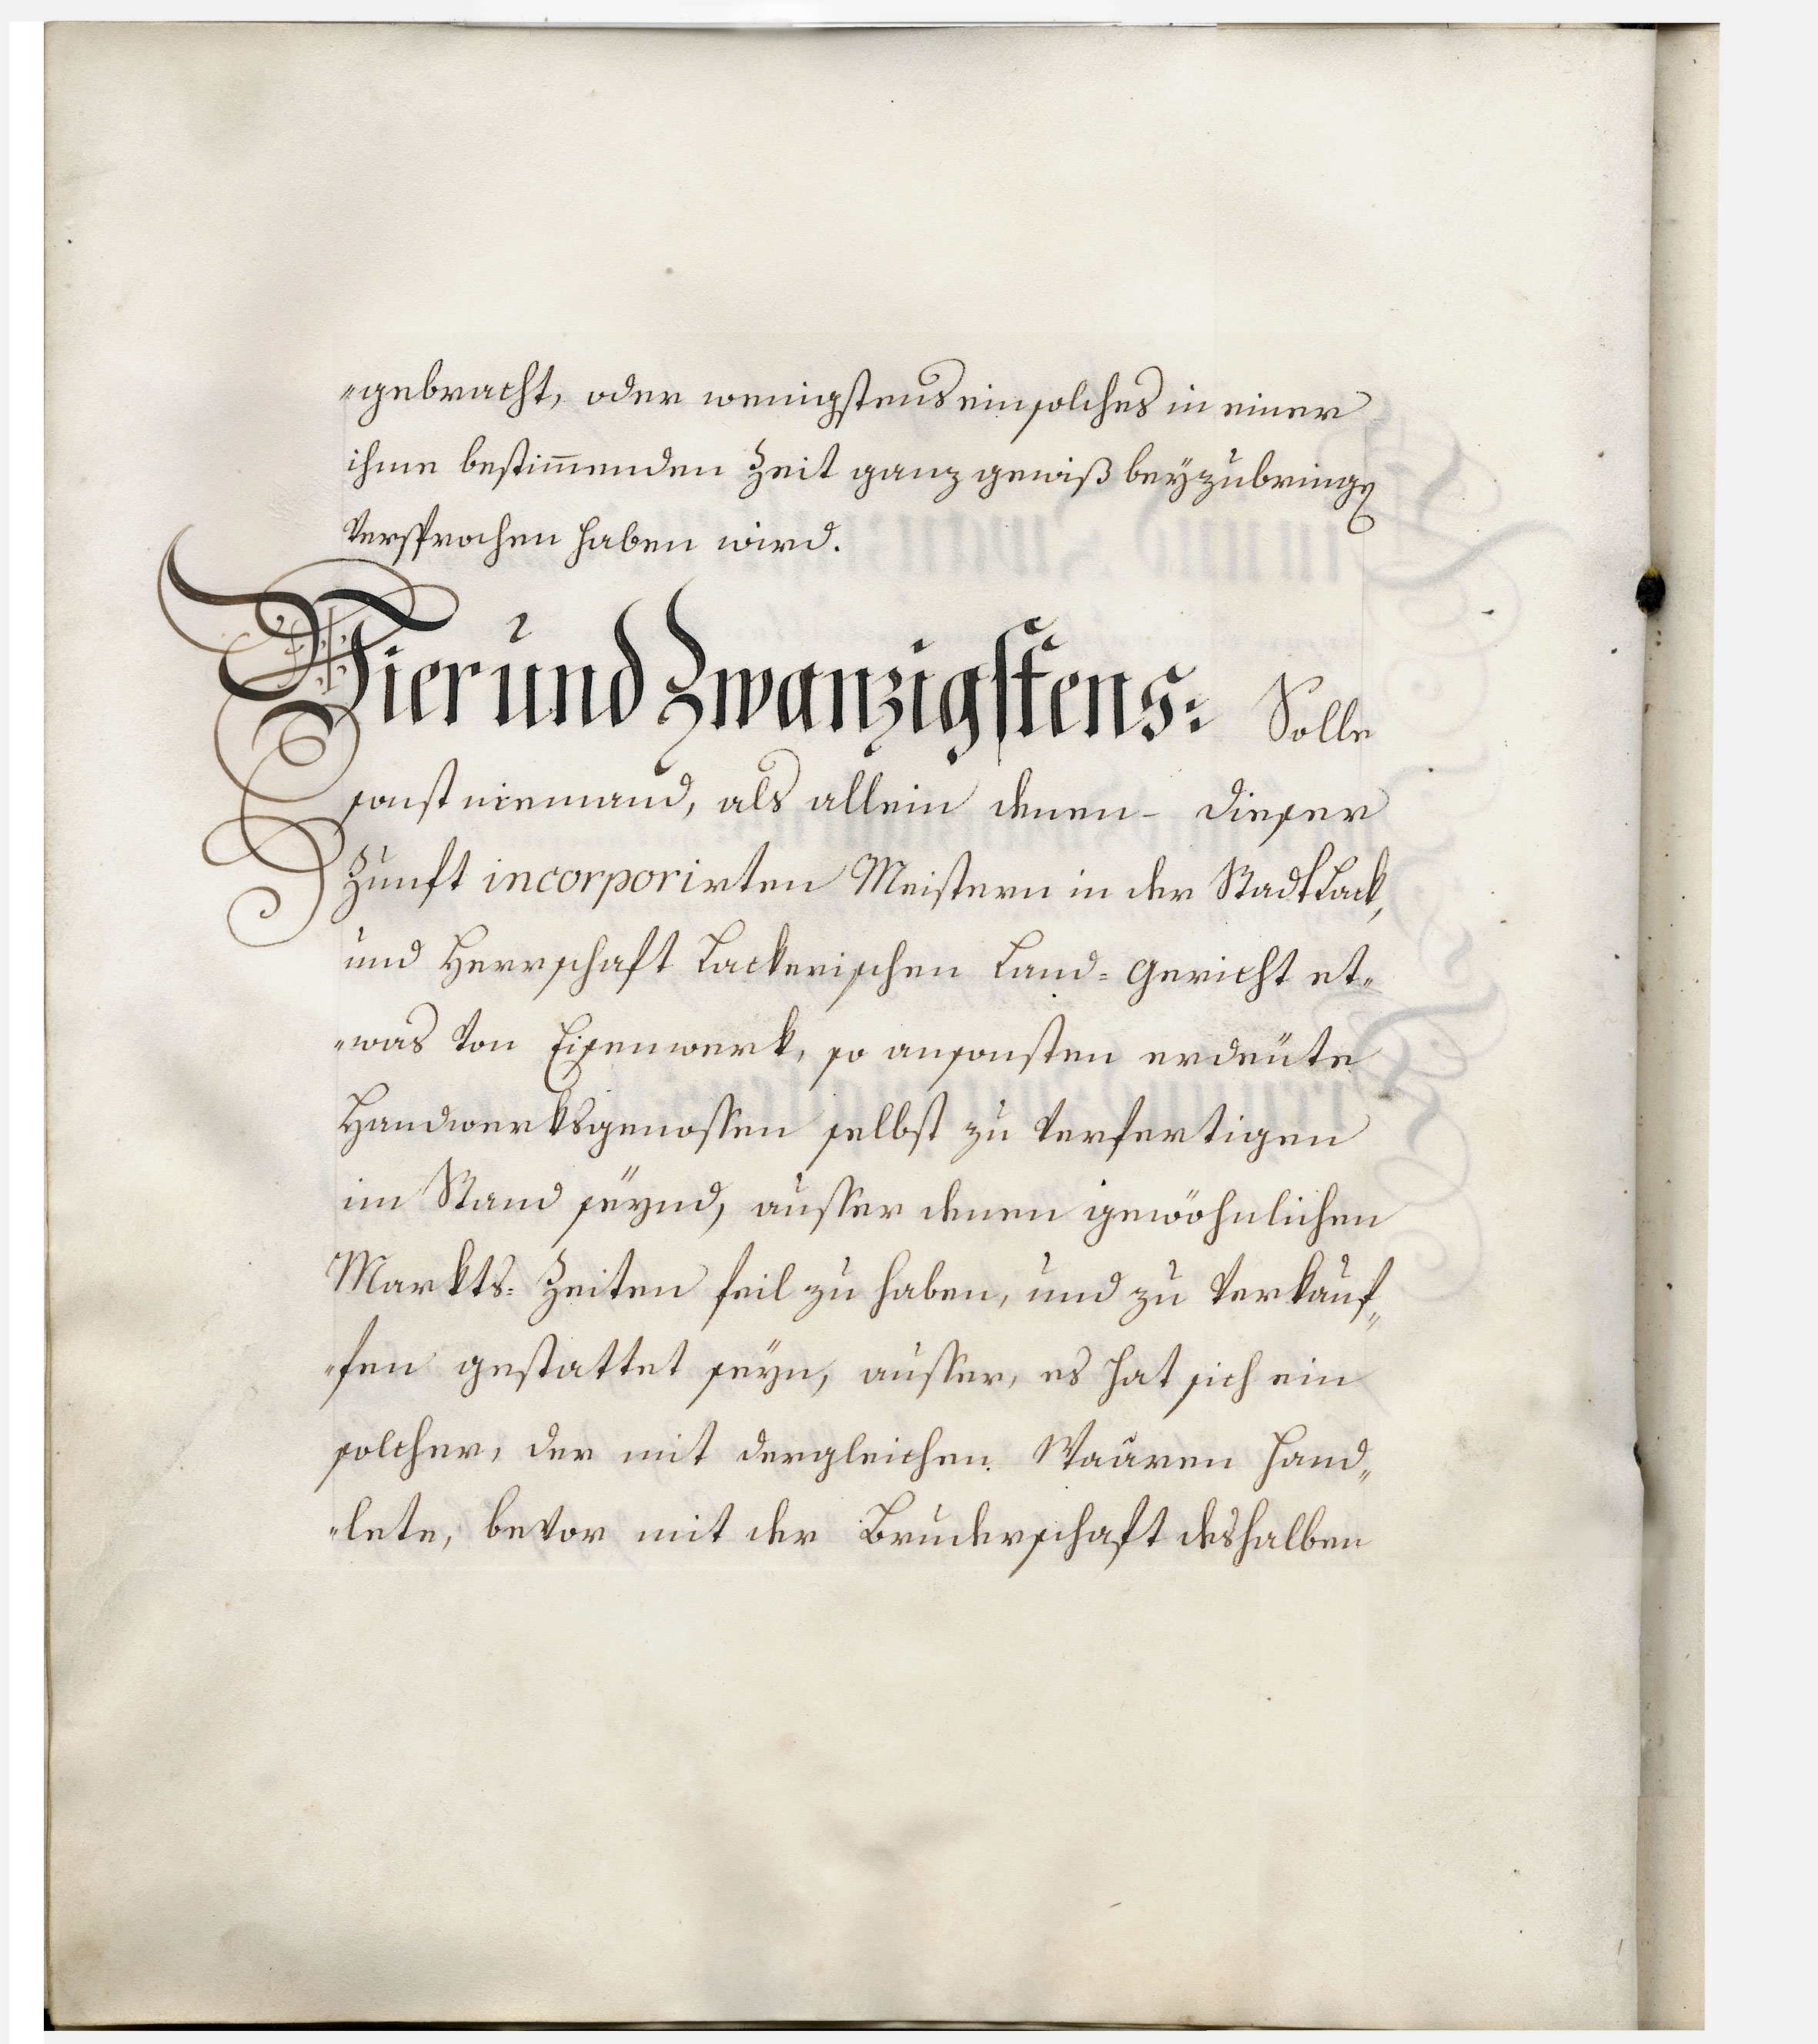 "gebracht, oder wenigstens ein solches in einer
ihme bestim̄enden Zeit ganz gewiß beyzubringen
versprochen haben wird.
Vier und Zwanzigstens: Solle
sonst niemand, als allein denen - dieser
Zunft incorporirten Meistern in der Stadt Lack,
und Herrschaft Lackerischen Land= Gericht et„
„was von Eisenwerk, so ansonsten erdeute
Handwerksgenossen selbst zu verfertigen
im Stand seynd, ausser denen gewöhnlichen
Markts= Zeiten feil zu haben, und zu verkauf„
„fen gestattet seyn, ausser, es hat sich ein
solcher, der mit dergleichen Waaren hand„
„lete, bevor mit der Bruderschaft deshalben